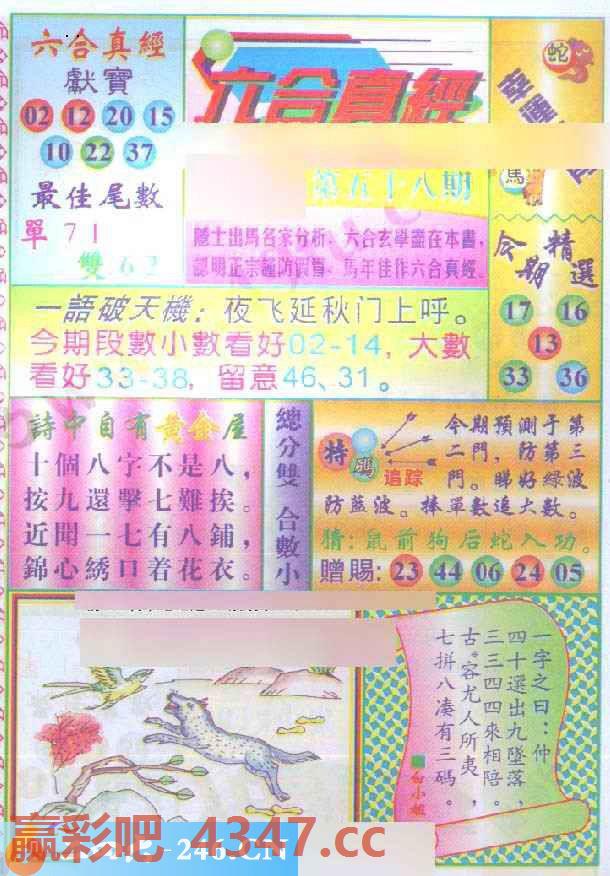 六合真經
獻寶
02 12 20 15
10 22 37
最佳尾數
單 71
雙 62
六合真經
第五十八期
隱士出馬名家分析,六合玄學盡在本書,
認明正宗謹防假冒,馬年佳作六合真經。
蛇
馬
今期精選
17 16
13
33 36
一語破天機:夜飞延秋门上呼。
今期段數小數看好02-14,大數
看好33-38,留意46、31。
詩中自有黃金屋
十個八字不是八,
按九還擊七難挨。
近聞一七有八鋪,
錦心綉口着花衣。
總分雙 合數小
特碼
追踪
今期預測于第
二門,防第三
門。睇好綠波
防藍波。捧單數追大數。
猜:鼠前狗后蛇入功。
赠賜:23 44 06 24 05
一字之曰:仲
四十選出九墜落,
三三四四來相陪。
古。客尤人所夷,
七拼八凑有三碼。
白小姐
赢彩吧 4347.cc
246.CN